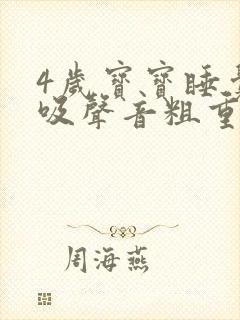 4歲寶寶睡
吸聲音粗重
周海燕